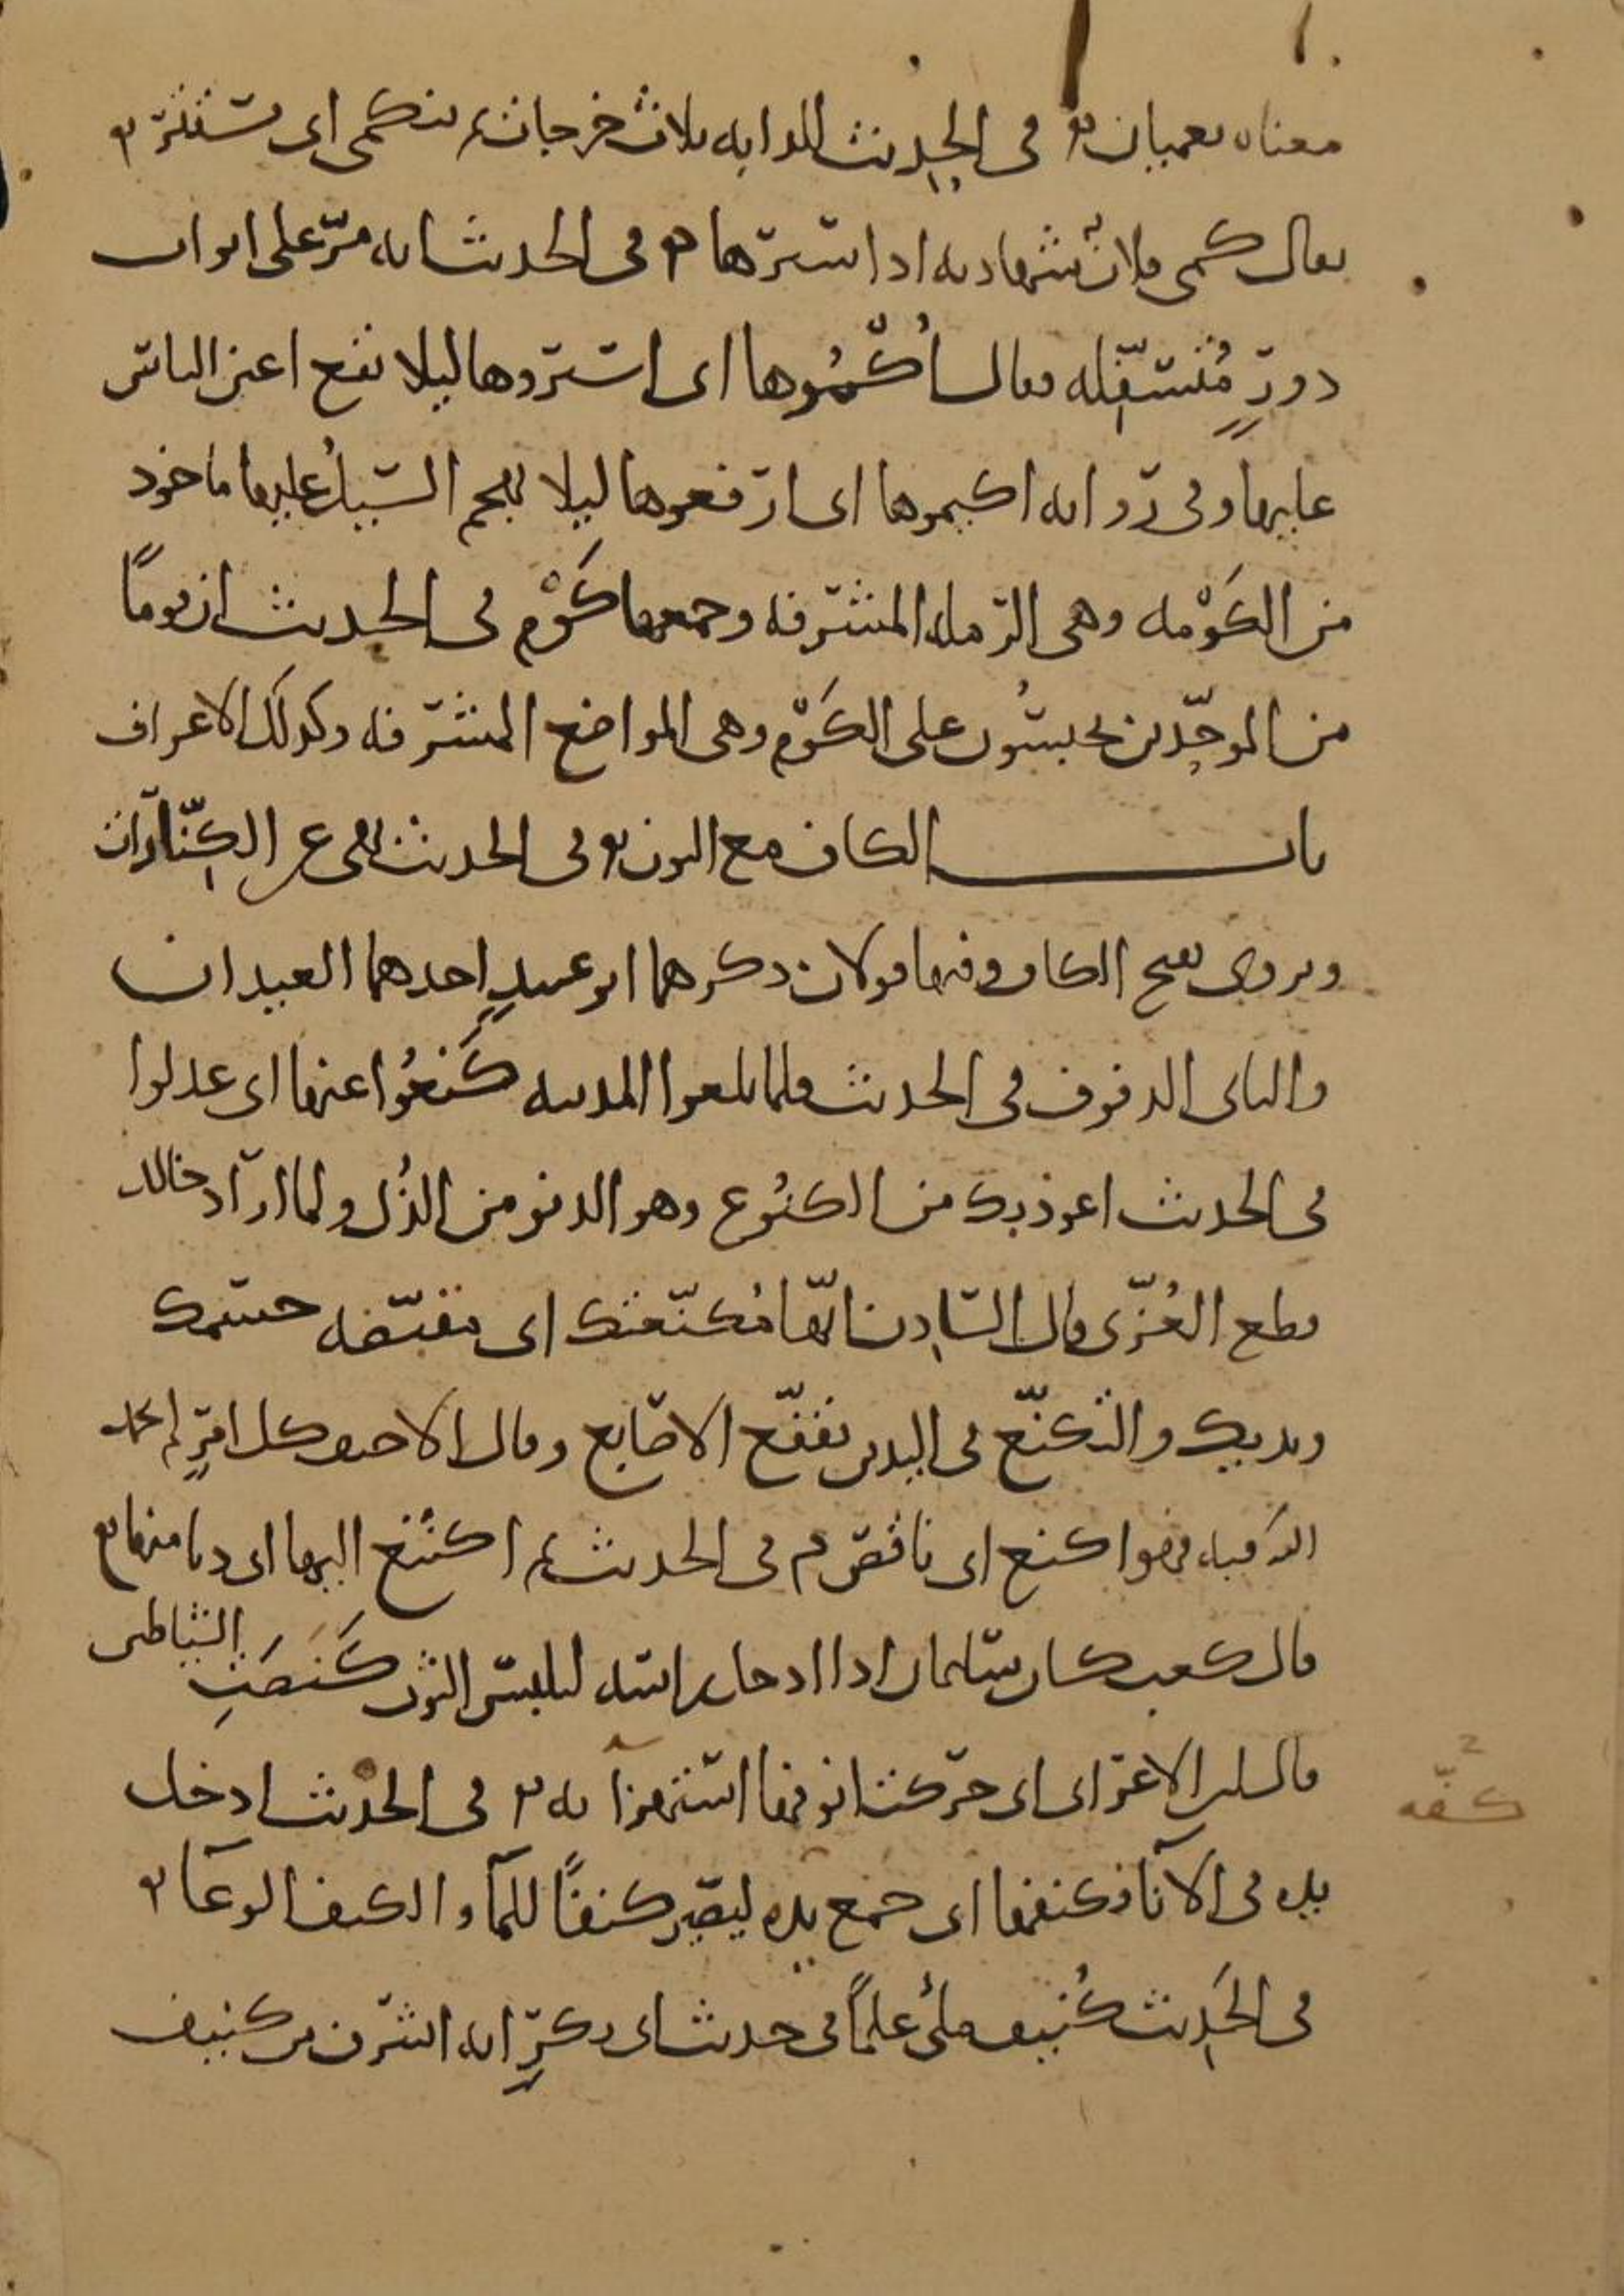 معناه يعميان في الحديث للدابه ثلاث خرجات ثم تنكمي اي تستتر
يقال كمى فلان شهادته اذا سترها في الحديث انه مرّ على ابواب
دورٍ مُتسفّله فقال اكْمُوها اي استروها ليلا تقع اعين الناس
عليها وفي رواية اكيموها اي ارفعوها ليلا يهجم السيلُ عليها ماخوذ
من الكَوْمه وهي الرمله المشرفه وجمعها كَوْم في الحديث ان قومًا
من الموحّدين يحبسُون على الكَوْم وهي المواضع المشرفه وكذلك الاعراف
باب الكاف مع النون في الحديث نهى عن الكِنّارات
ويروى بفتح الكاف وفيها قولان ذكرهما ابو عبيدٍ احدهما العيدان
والثاني الدفوف في الحديث فلما بلغوا المدينه كَنَعُوا عنها اي عدلوا
في الحديث اعوذ بك من الكنُوع وهو الدنو من الذُل ولما اراد خالد
قطع العُزّى قال السّادِن انّها مُكنّعتك اي مقبّضه جسمك
ويديك والتكنّع في اليدين تقفّع الاصابع وقال الاحنف كل امرٍ لم يحمد
الله فيه فهو اكنع اي ناقص في الحديث ثم اكتنع اليها اي دنا منها
قال كعب كان سليمان اذا ادخل راسه للبس الثوب كَنَصَتِ الشياطين
قال ابن الاعرابي اي حرّكت انوفها استهزآ به في الحديث ادخل
يده في الانآ فكنفها اي جمع يده ليصير كنفًا للمآ والكنف الوعآ
في الحَدِيث كُنيف ملئ علمًا في حديث ابي بكرٍ انه اشرف من كنيف
كفّه